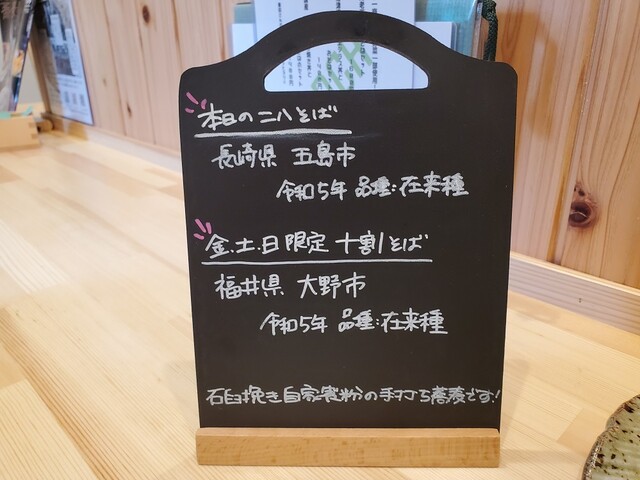 本日の二八そば
長崎県 五島市
令和5年 品種:在来種
金.土.日限定 十割そば
福井県 大野市
令和5年 品種:在来種
石臼挽き自家製粉の手打ち蕎麦です!